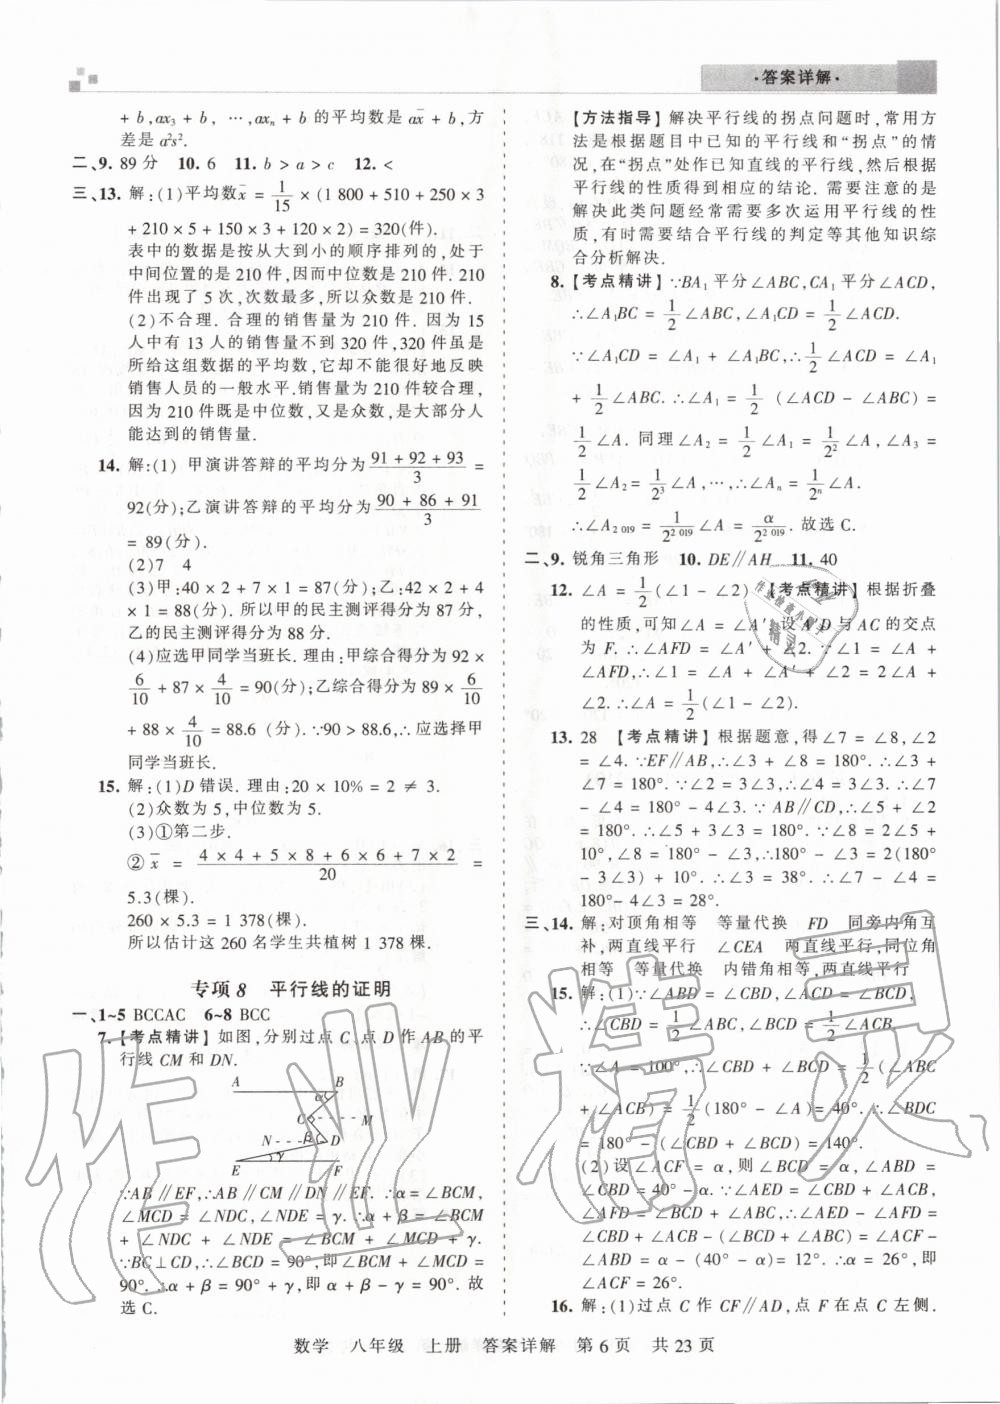 ·答案详解·
+ b,ax₃ + b, …,axₙ + b 的平均数是 ax̄ + b,方
差是 a²s².
二、9. 89分 10. 6 11. b > a > c 12. <
三、13. 解:(1)平均数x̄ = 1/15 × (1 800 + 510 + 250 × 3
+ 210 × 5 + 150 × 3 + 120 × 2) = 320(件).
表中的数据是按从大到小的顺序排列的,处于
中间位置的是 210 件,因而中位数是 210 件. 210
件出现了 5 次,次数最多,所以众数是 210 件.
(2)不合理. 合理的销售量为 210 件. 因为 15
人中有 13 人的销售额不到 320 件,320 件虽是
所给这组数据的平均数,它却不能很好地反映
销售人员的一般水平. 销售量为 210 件较合理,
因为 210 件既是中位数,又是众数,是大部分人
能达到的销售量.
14. 解:(1) 甲演讲答辩的平均分为 (91 + 92 + 93)/3 =
92(分);乙演讲答辩的平均分为 (90 + 86 + 91)/3
= 89(分).
(2)7 4
(3)甲:40 × 2 + 7 × 1 = 87(分);乙:42 × 2 + 4
× 1 = 88(分). 所以甲的民主测评得分为 87 分,
乙的民主测评得分为 88 分.
(4)应选甲同学当班长. 理由:甲综合得分为 92 ×
6/10 + 87 × 4/10 = 90(分);乙综合得分为 89 × 6/10
+ 88 × 4/10 = 88.6 (分). ∵90 > 88.6,∴应选择甲
同学当班长.
15. 解:(1)D 错误. 理由:20 × 10% = 2 ≠ 3.
(2)众数为 5,中位数为 5.
(3)①第二步.
② x̄ = (4 × 4 + 5 × 8 + 6 × 6 + 7 × 2)/20 =
5.3(棵).
260 × 5.3 = 1 378(棵).
所以估计这 260 名学生共植树 1 378 棵.
专项 8 平行线的证明
一、1~5 BCCAC 6~8 BCC
7. 【考点精讲】如图,分别过点 C、点 D 作 AB 的平
行线 CM 和 DN.
A B
α
C M
N β D
γ
E F
∵AB∥EF,∴AB∥CM∥DN∥EF. ∴α = ∠BCM,
∠MCD = ∠NDC,∠NDE = γ. ∴α + β = ∠BCM
+ ∠NDC + ∠NDE = ∠BCM + ∠MCD + γ.
∵BC⊥CD,∴∠BCD = 90°,即∠BCM + ∠MCD =
90°. ∴α + β = 90° + γ,即 α + β − γ = 90°. 故
选 C.
【方法指导】解决平行线的拐点问题时,常用方
法是根据题目中已知的平行线和“拐点”的情
况,在“拐点”处作已知直线的平行线,然后根据
平行线的性质得到相应的结论. 需要注意的是
解决此类问题经常需要多次运用平行线的性
质,有时需要结合平行线的判定等其他知识综
合分析解决.
8. 【考点精讲】∵BA₁平分∠ABC,CA₁平分∠ACD,
∴∠A₁BC = 1/2∠ABC,∠A₁CD = 1/2∠ACD.
∵∠A₁CD = ∠A₁ + ∠A₁BC,∴1/2∠ACD = ∠A₁
+ 1/2∠ABC. ∴∠A₁ = 1/2(∠ACD − ∠ABC) =
1/2∠A. 同理∠A₂ = 1/2∠A₁ = 1/2²∠A,∠A₃ =
1/2∠A₂ = 1/2³∠A,…,∴∠Aₙ = 1/2ⁿ∠A.
∴∠A₂ ₀₁₉ = 1/2² ⁰¹⁹∠A = α/2² ⁰¹⁹. 故选 C.
二、9. 锐角三角形 10. DE∥AH 11. 40
12. ∠A = 1/2(∠1 − ∠2) 【考点精讲】根据折叠
的性质,可知∠A = ∠A′. 设 A′D 与 AC 的交点
为 F. ∴∠AFD = ∠A′ + ∠2. ∴∠1 = ∠A +
∠AFD,∴∠1 = ∠A + ∠A′ + ∠2 = 2∠A +
∠2. ∴∠A = 1/2(∠1 − ∠2).
13. 28 【考点精讲】根据题意,得∠7 = ∠8,∠2
= ∠4. ∵EF∥AB,∴∠3 + ∠8 = 180°. ∴∠3 +
∠7 = 180°. ∵∠2 = 3∠3,∴∠4 = 3∠3. ∴∠7
− ∠4 = 180° − 4∠3. ∵ AB∥CD,∴∠5 + ∠2
= 180°. ∴∠5 + 3∠3 = 180°. ∵∠8 = 2∠5 +
10°,∠8 = 180° − ∠3,∴180° − ∠3 = 2(180°
− 3∠3) + 10°. ∴∠3 = 38°. ∴∠7 − ∠4 =
180° − 4∠3 = 28°.
三、14. 解:对顶角相等 等量代换 FD 同旁内角互
补,两直线平行 ∠CEA 两直线平行,同位角
相等 等量代换 内错角相等,两直线平行
15. 解:(1)∵∠ABD = ∠CBD,∠ACD = ∠BCD,
∴∠CBD = 1/2∠ABC,∠BCD = 1/2∠ACB.
∵∠A = 100°,∴∠CBD + ∠BCD = 1/2(∠ABC
+ ∠ACB) = 1/2(180° − ∠A) = 40°. ∴∠BDC
= 180° − (∠CBD + ∠BCD) = 140°.
(2)设∠ACF = α,则∠BCD = α,∠ABD =
∠CBD = 40° − α. ∵∠AED = ∠CBD + ∠ACB,
∠AFD = ∠BCD + ∠ABC,∴∠AED − ∠AFD =
∠CBD + ∠ACB − (∠BCD + ∠ABC) = ∠ACF −
∠ABD = α − (40° − α) = 12°. ∴α = 26°,即
∠ACF = 26°.
16. 解:(1)过点 C 作 CF∥AD,点 F 在点 C 左侧.
数学 八年级 上册 答案详解 第 6 页 共 23 页
作业精灵